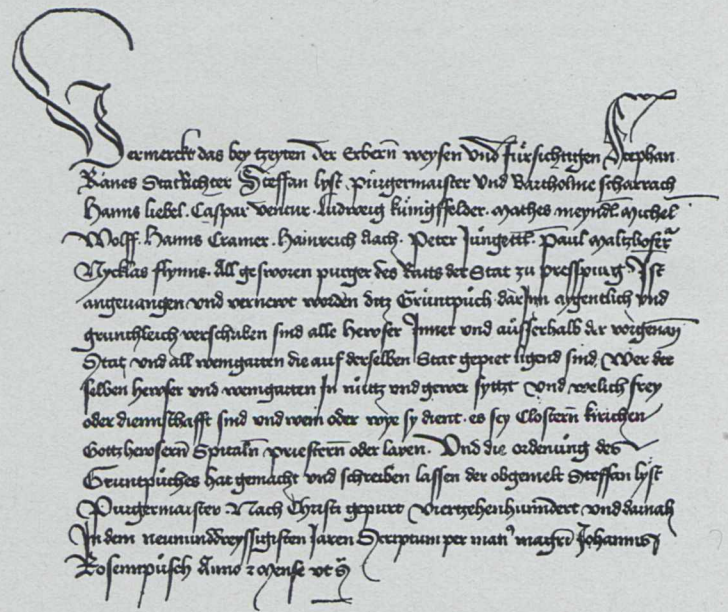 Vermerckt das bey tzeyten der Erbern weysen vnd fürsichtigen Stephan
Ranes StatRichter Steffan lyst Purgermaister vnd Bartholme scharrach
Hanns liebel. Caspar ventur. Ludweig kunigsfelder. Mathes meyndl Michel
Wolff. Hanns Cramer. Hainreich Aach. Peter Jungettl. Paul Maltzhofer
Nycklas flynns. All gesworen purger des Ratts der Stat zu presspurg. Ist
angeuangen vnd vernewt worden ditz Gruntpuch darInn aygentlich vnd
gruntleich verschriben sind alle hewser Inner vnd ausserhalb der vorgenan
Stat vnd all weingarten die auf derselben Stat gepiet ligend sind. Wer die
selben hewser vnd weingarten In nutz vnd gewer sytzt vnd welich frey
oder diennsthafft sind vnd wem oder wye sy dient. es sey Clostern kirichen
Gottzhewsern Spitaln priestern oder layen. Vnd die ordenung des
Gruntpuches hat gemacht vnd schreiben lassen der obgemelt Steffan lyst
Purgermaister. Nach Christi gepurt Viertzehenhunndert vnd darnah
In dem neununddreyssigisten Jaren Scriptum per man magri Johannis
Rosennpusch Anno z mense vt s